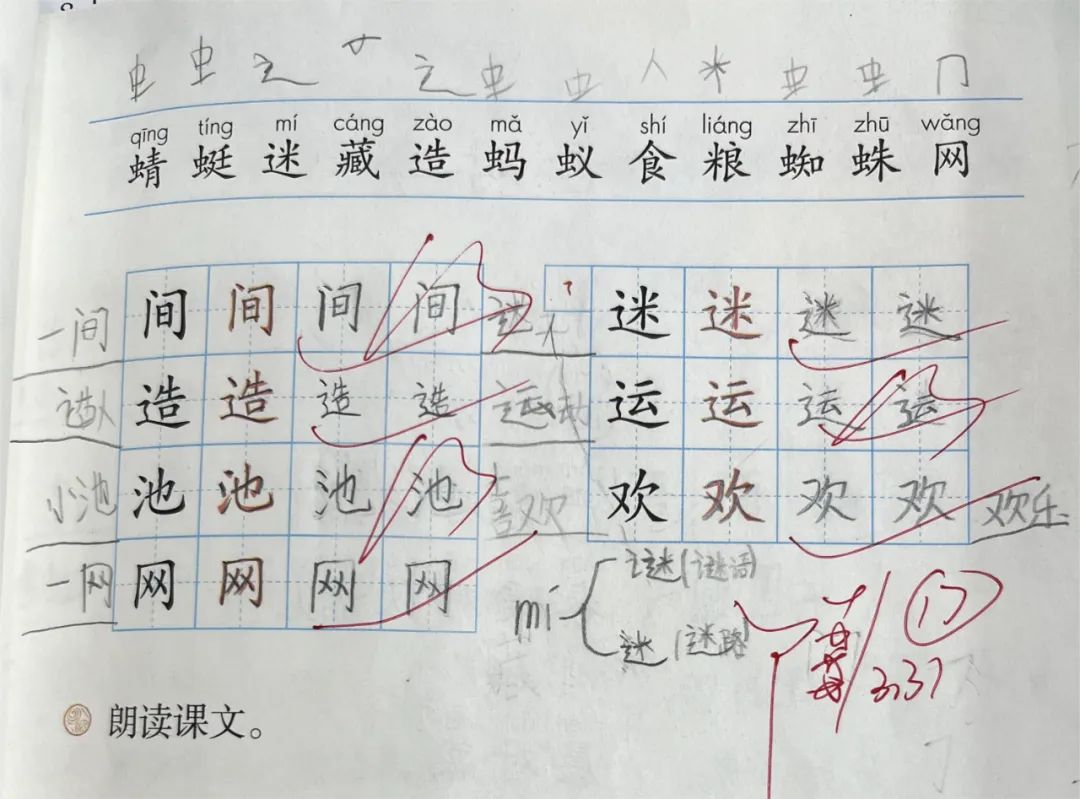 虫 虫 辶 艹 辶 虫 虫 人 米 虫 虫 冂
qīng tíng mí cáng zào mǎ yǐ shí liáng zhī zhū wǎng
蜻 蜓 迷 藏 造 蚂 蚁 食 粮 蜘 蛛 网
一间 间 间 间 间 迷人 迷 迷 迷 迷
造人 造 造 造 造 运动 运 运 运 运
小池 池 池 池 池 喜欢 欢 欢 欢 欢 欢乐
一网 网 网 网 网
mí 谜(谜语)
迷(迷路)
17
3.31
朗读课文。